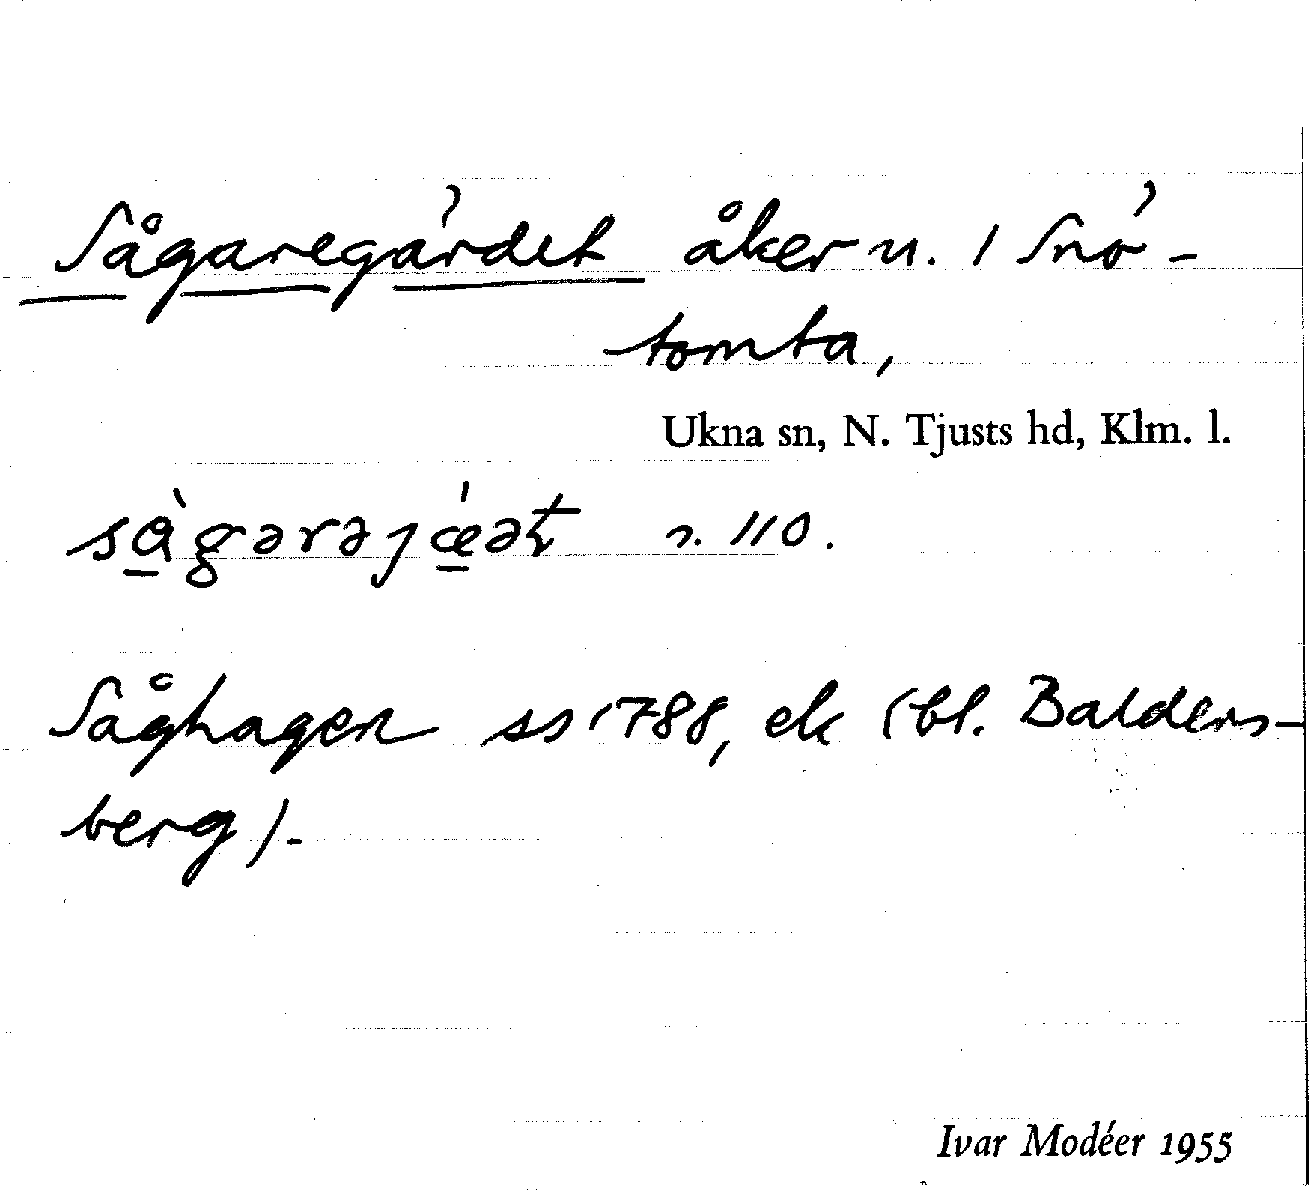 Sågaregärdet åker u. / Snö-
tomta,
Ukna sn, N. Tjusts hd, Klm. l.
sàgərəȷǽət n. 110.
Såghagen ss 1788, ek (bl. Balders-
berg).
Ivar Modéer 1955